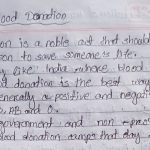 ood Donation
on is a noble act that should
son to save someone's life.
y like India where blood
d donation is the best way
enerally a positive and negati
, AB and O.
government and non-pro
blood donation camps that day